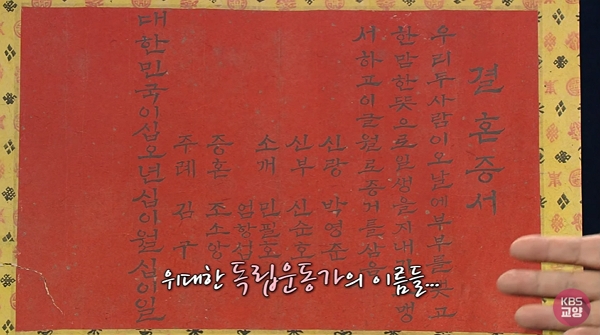 결혼증서
우리두사람이오날에부부를맷고
한맘한뜻으로일생을지내기맹
서하고이글월로증거를삼음
신랑 박영준
신부 신순호
소개 민필호
엄항섭
증혼 조소앙
주례 김구
대한민국이십오년십이월십이일
위대한 독립운동가의 이름들...
KBS
교양